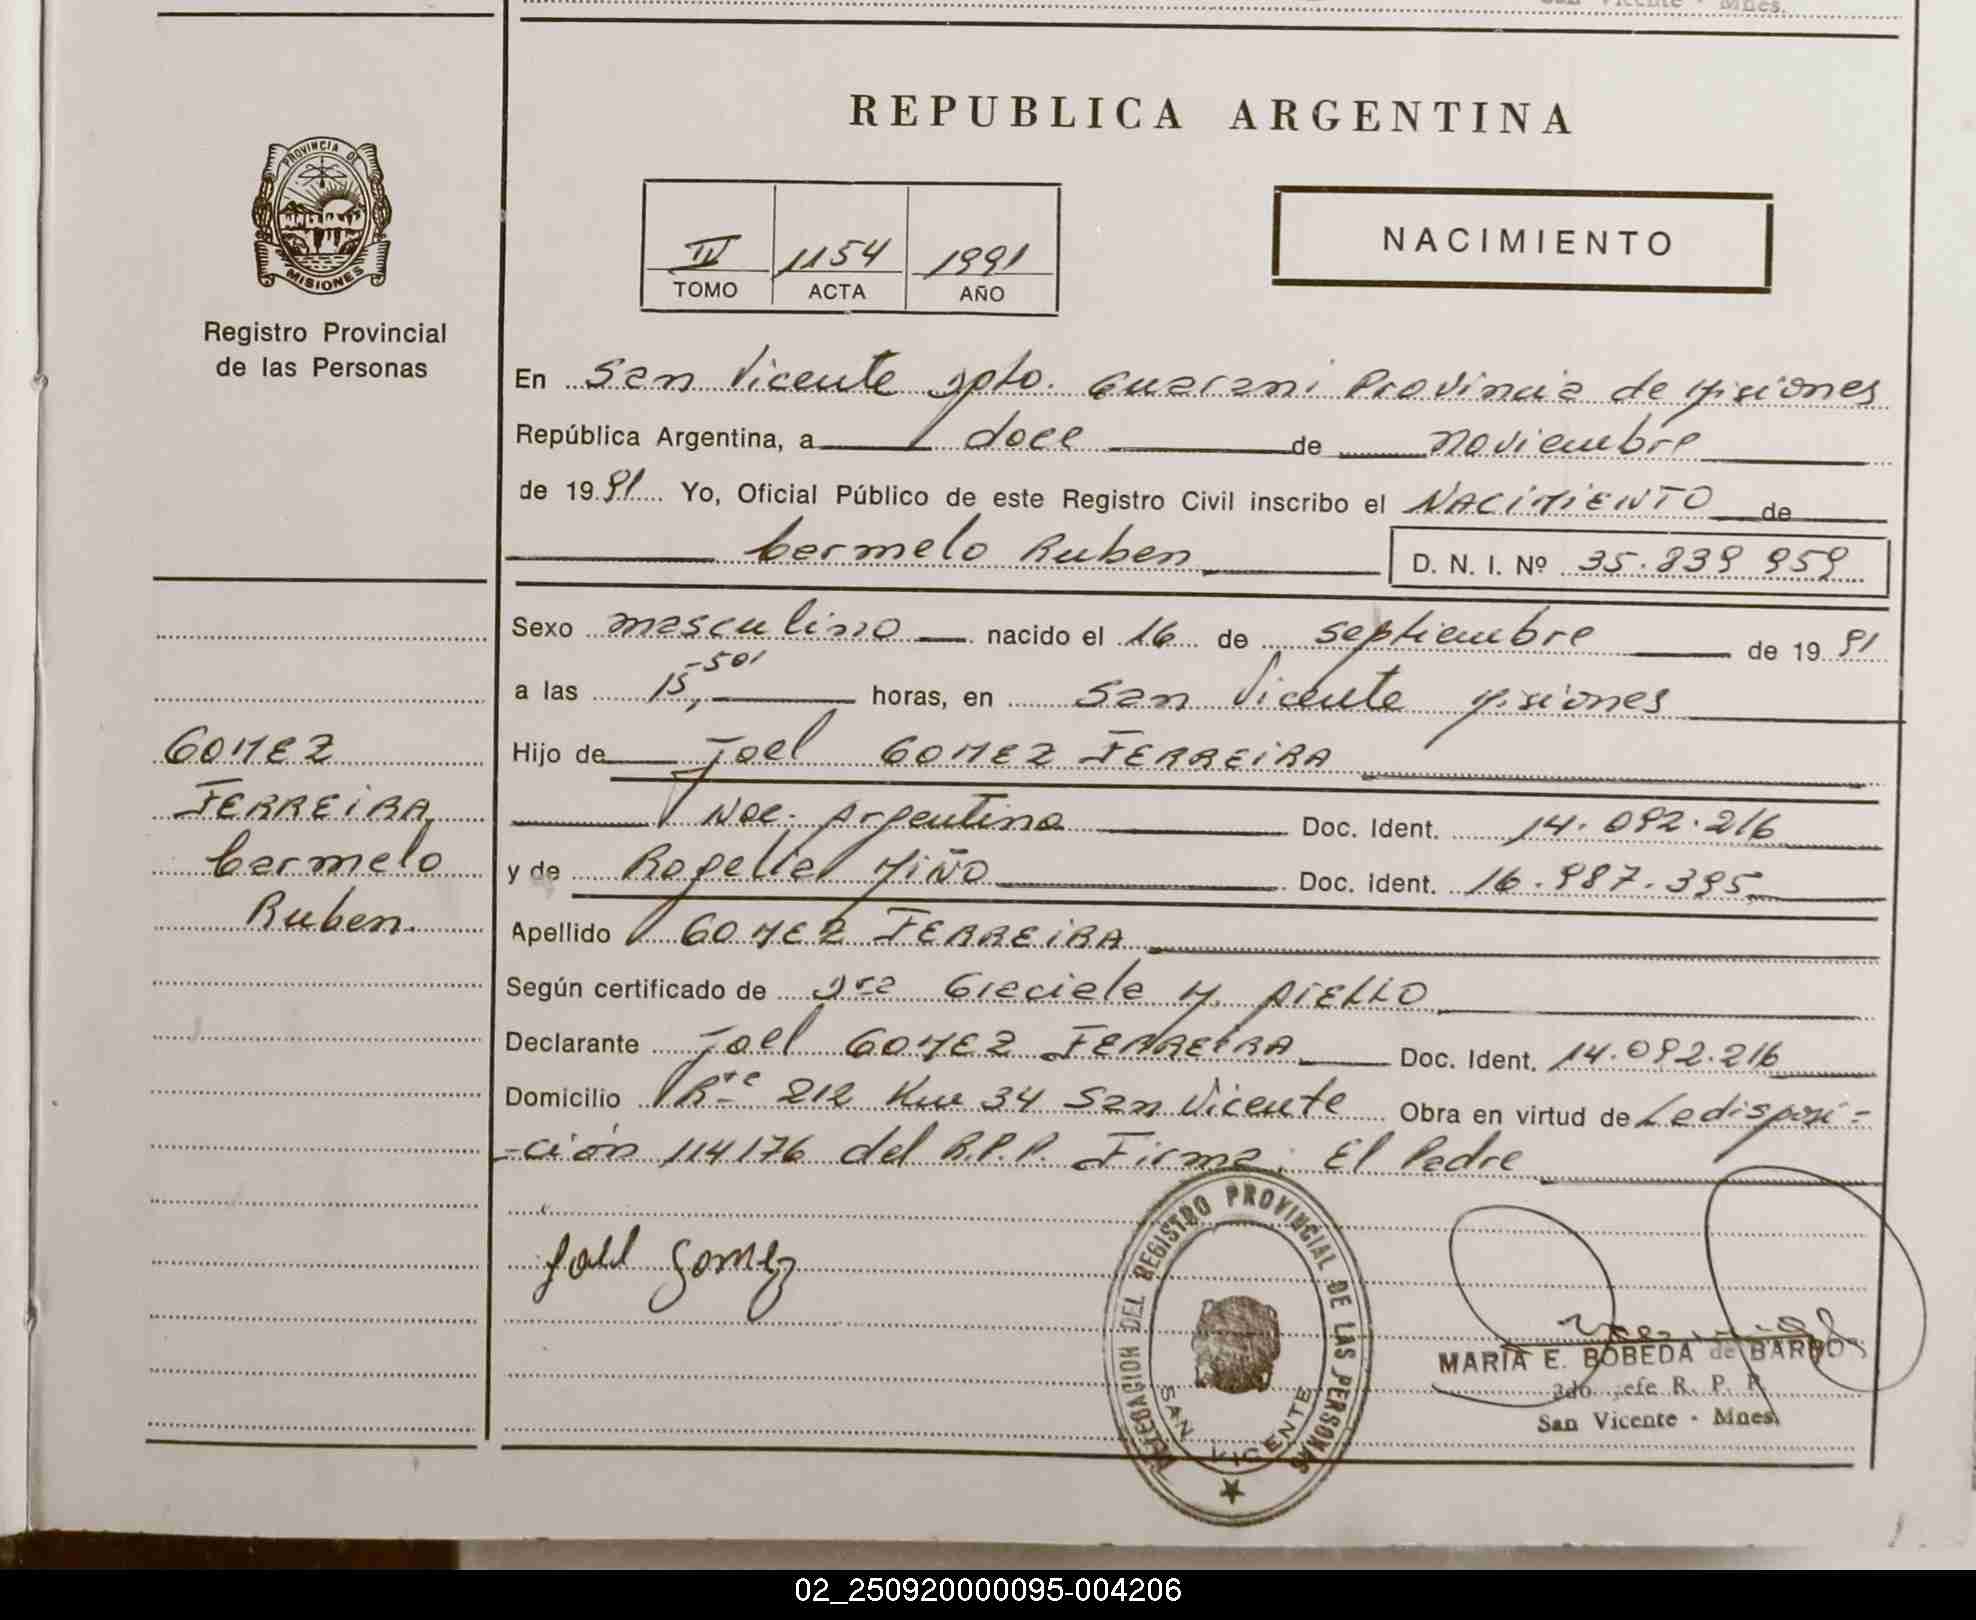 San Vicente - Mnes.
REPUBLICA ARGENTINA
PROVINCIA DE
MISIONES
Registro Provincial
de las Personas
IV 1154 1991
TOMO ACTA AÑO
NACIMIENTO
En San Vicente Dpto. Guarani Provincia de Misiones
República Argentina, a doce de noviembre
de 1991 Yo, Oficial Público de este Registro Civil inscribo el NACIMIENTO de
Carmelo Ruben D. N. I. Nº 35.839 959
Sexo masculino nacido el 16 de septiembre de 1991
a las 15,-50' horas, en San Vicente Misiones
Hijo de Joel GOMEZ FERREIRA
Nac. Argentina Doc. Ident. 14.092.216
y de Rogelia MIÑO Doc. Ident. 16.987.395
Apellido GOMEZ FERREIRA
Según certificado de Dra Graciela M. AIELLO
Declarante Joel GOMEZ FERREIRA Doc. Ident. 14.092.216
Domicilio Rta 212 Km 34 San Vicente Obra en virtud de La disposi-
-ción 114176 del R.P.P. Firma: El Padre
GOMEZ
FERREIRA
Carmelo
Ruben.
Joel Gomez
DELEGACION DEL REGISTRO PROVINCIAL DE LAS PERSONAS
SAN VICENTE
MARIA E. BOBEDA de BARROS
2do. Jefe R. P. P.
San Vicente - Mnes.
02_250920000095-004206